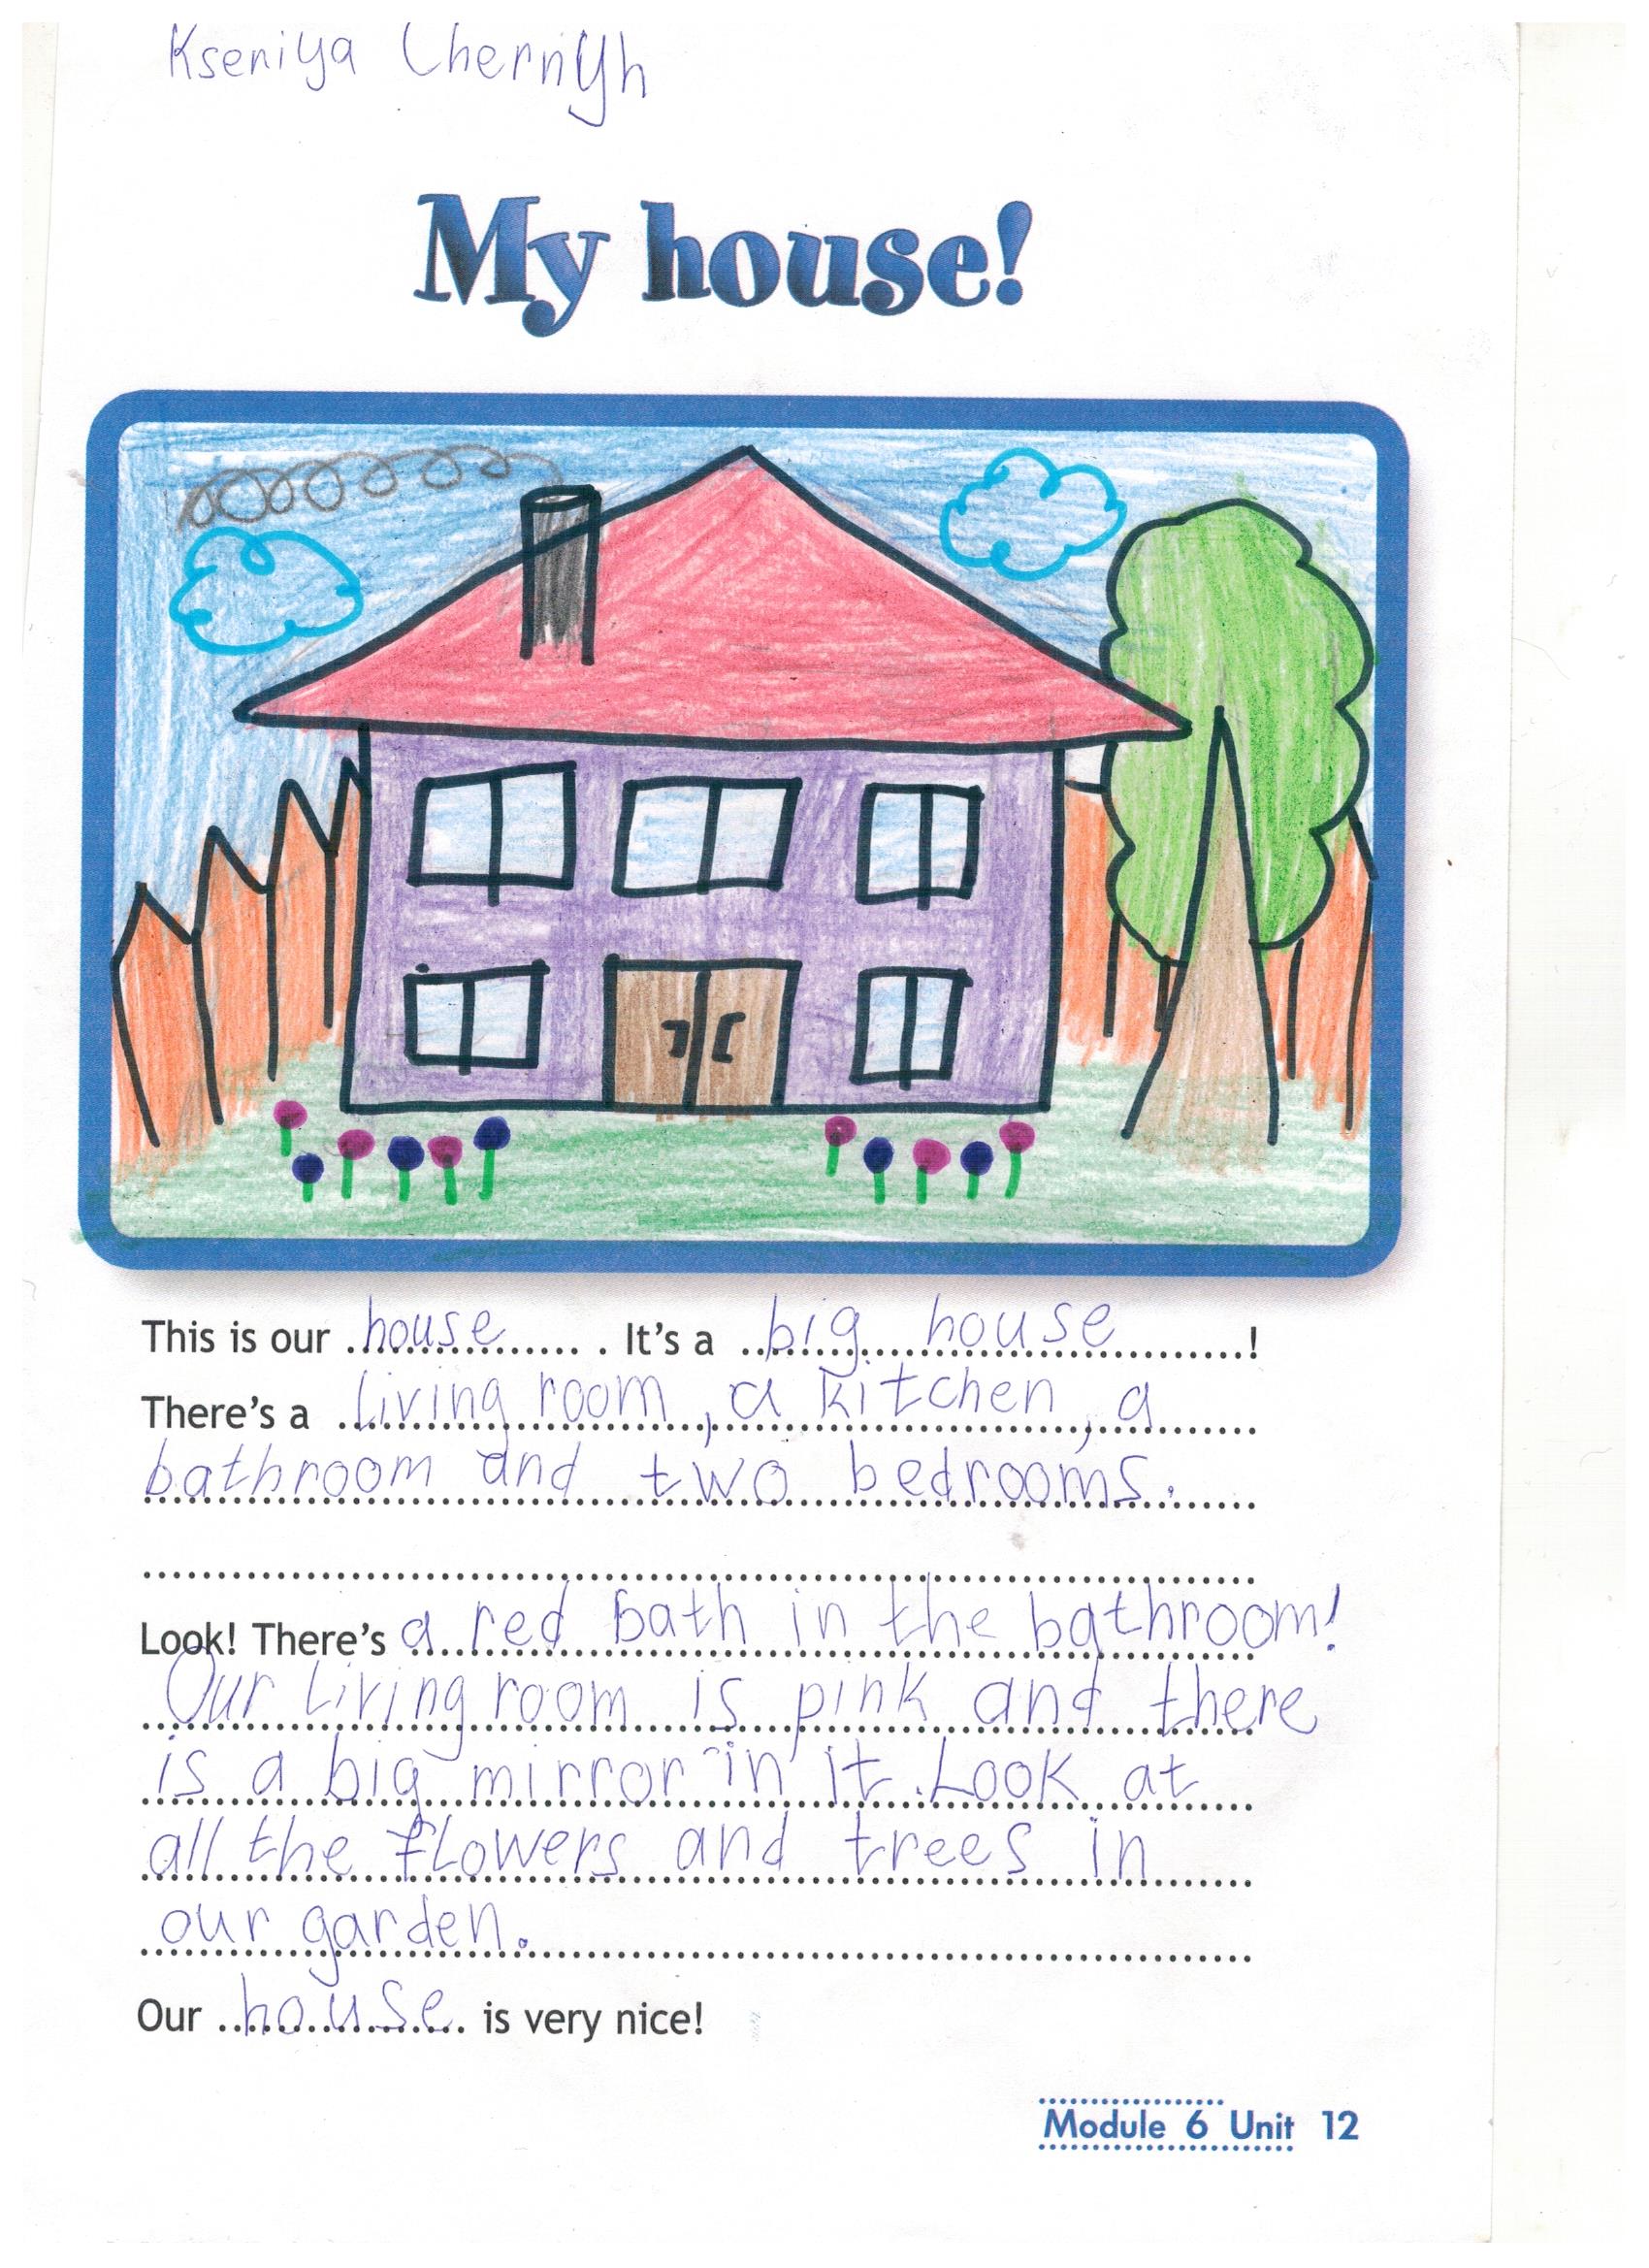 Kseniya Chernyh
My house!
This is our house . It's a big house!
There's a living room, a kitchen, a
bathroom and two bedrooms.
Look! There's a red bath in the bathroom!
Our living room is pink and there
is a big mirror in it. Look at
all the flowers and trees in
our garden.
Our house is very nice!
Module 6 Unit 12